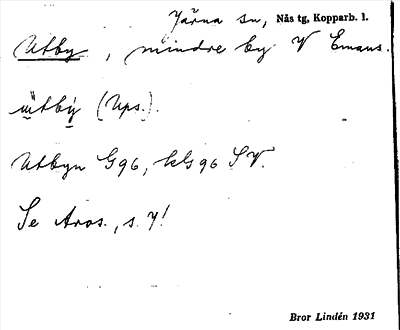 Järna sn, Nås tg, Kopparb. l.
Utby, mindre by V Emaus.
ùtby̗ (Ups.).
Utbyn G96, kG96 SV.
Se Aros., s. 7!
Bror Lindén 1931